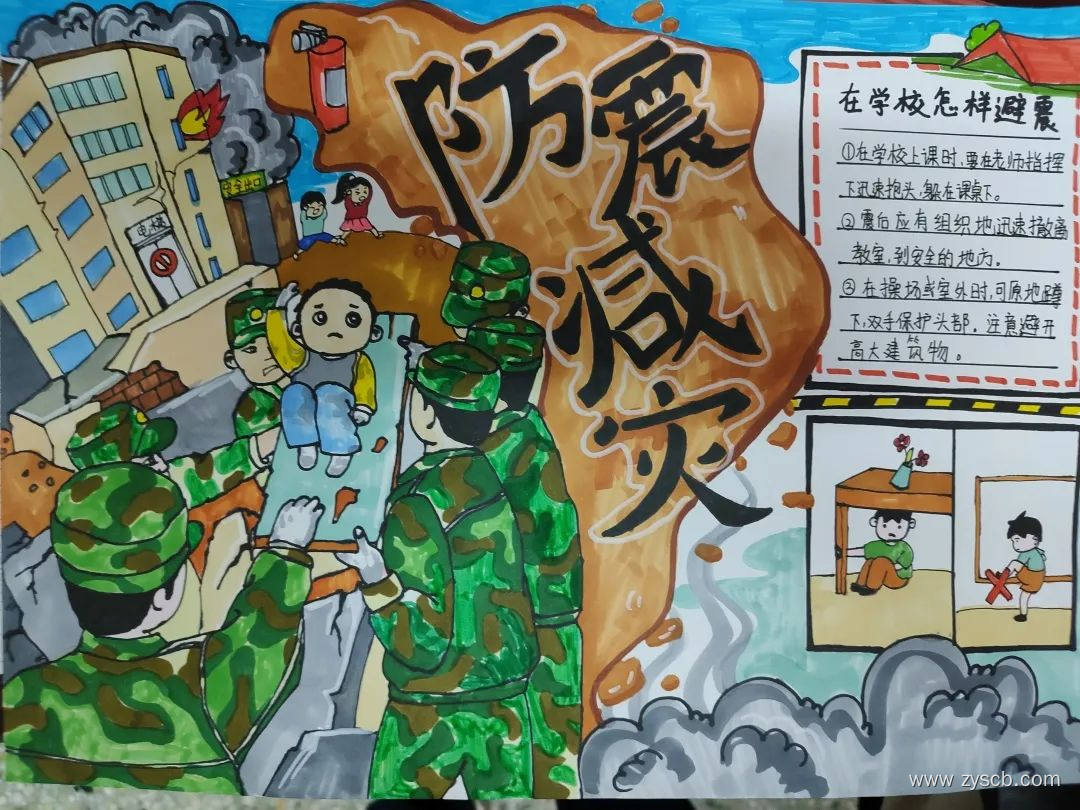 防震
减灾
安全出口
电梯
在学校怎样避震
①在学校上课时,要在老师指挥
下迅速抱头,躲在课桌下。
②震后应有组织地迅速撤离
教室,到安全的地方。
③在操场或室外时,可原地蹲
下,双手保护头部。注意避开
高大建筑物。
www.zyscb.com